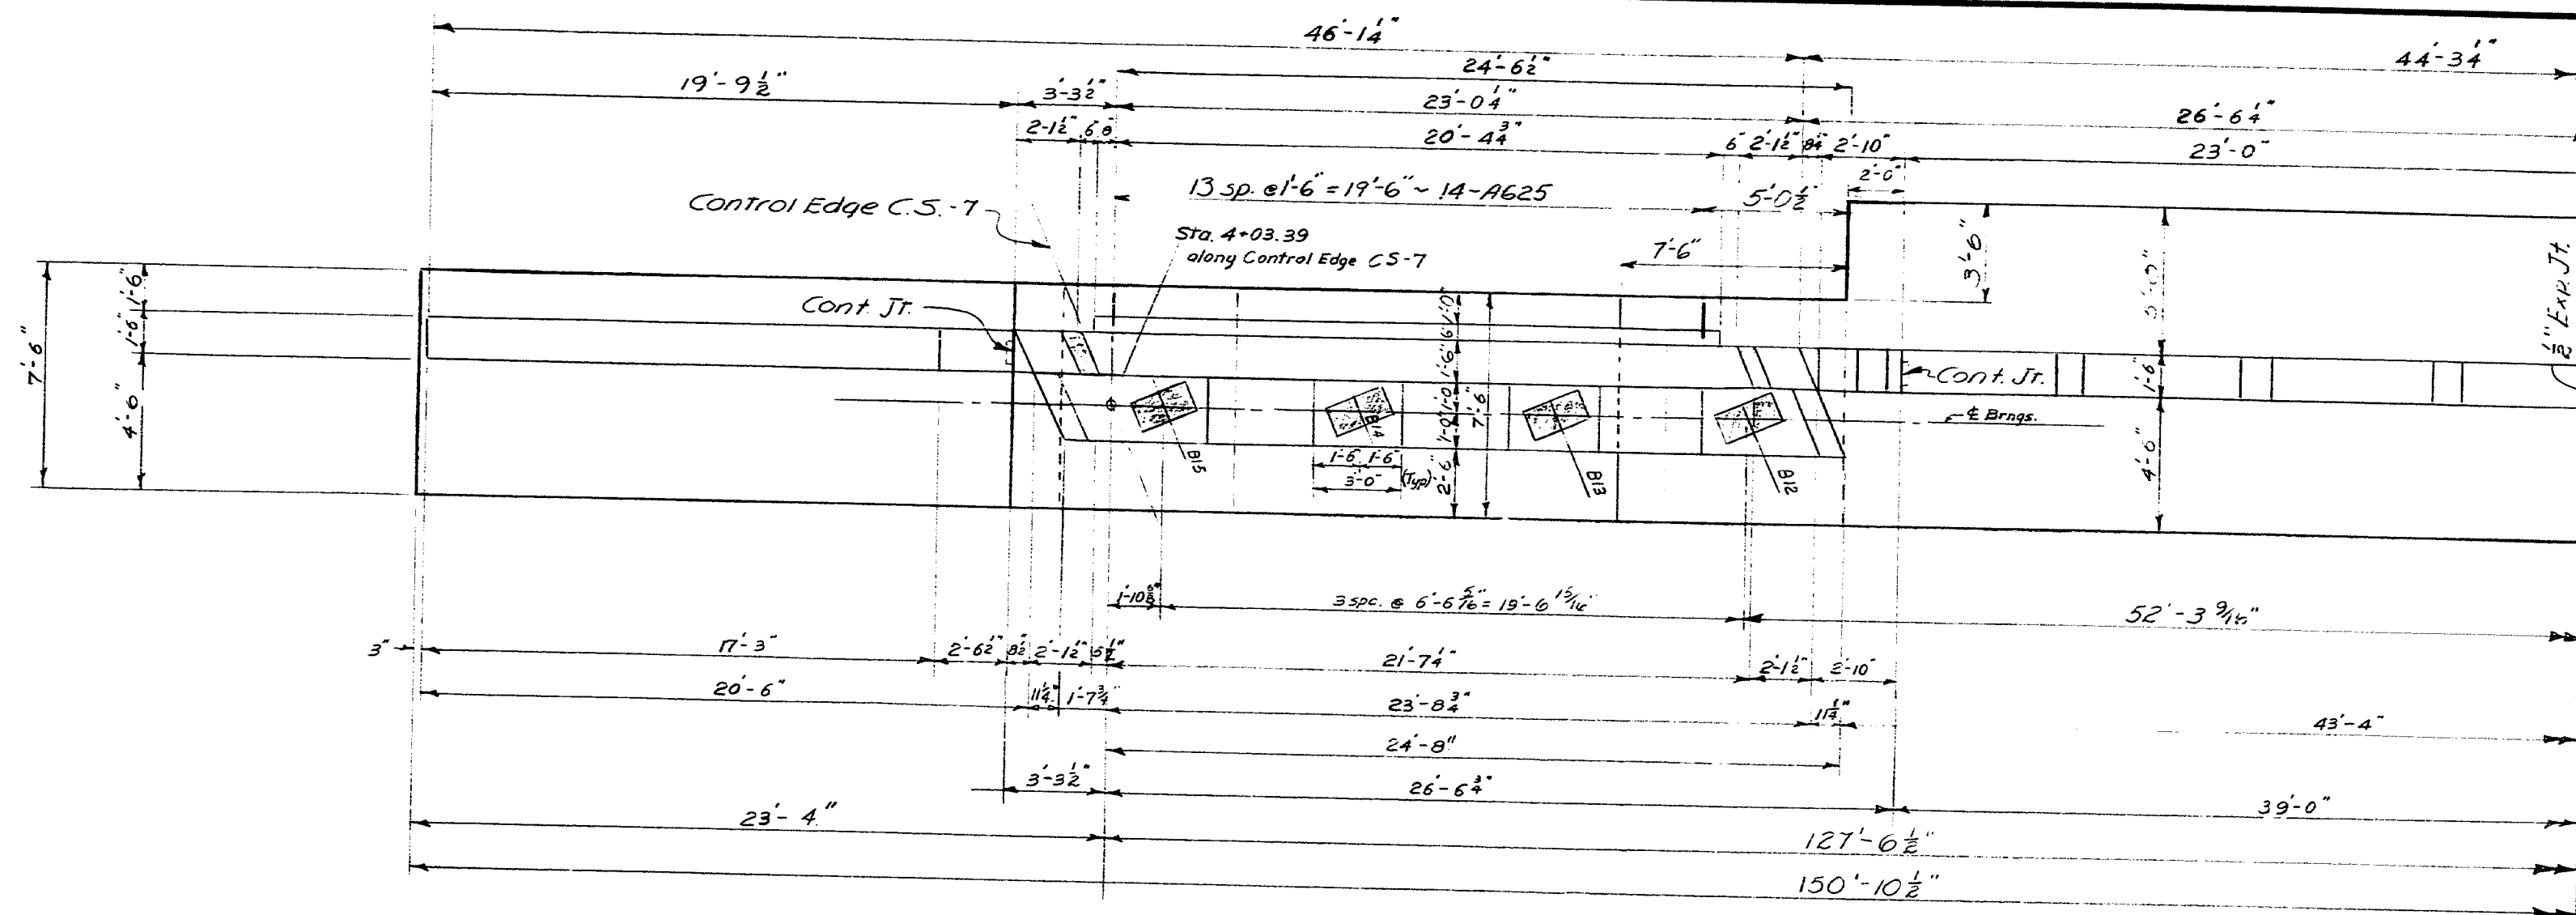 46'-1¼"
44'-3¼"
24'-6½"
19'-9½"
3'-3½"
23'-0¼"
26'-6¼"
2'-1½" 6" 8"
20'-4¾"
6" 2'-1½" 8¼" 2'-10"
23'-0"
2'-0"
13 sp. @ 1'-6" = 19'-6" ~ 14-A625
5'-0½"
Control Edge C.S.-7
Sta. 4+03.39
along Control Edge CS-7
7'-6"
3'-6"
½" Exp. Jt.
7'-6"
1'-6"
1'-6"
4'-6"
Cont. Jt.
1'-0"
6"
1'-6"
1'-0"
1'-0"
2'-6"
7'-6"
1'-6"
4'-6"
Cont. Jt.
℄ Brngs.
B15
B14
B13
B12
1'-6" 1'-6"
3'-0" (Typ)
1'-10⅝"
3 spc. @ 6'-6 5/16" = 19'-6 15/16"
52'-3 9/16"
3"
17'-3"
2'-6½" 8½" 2'-1½" 5½"
21'-7¼"
2'-1½" 2'-10"
20'-6"
11¼" 1'-7¾"
23'-8¾"
11¼"
43'-4"
24'-8"
3'-3½"
26'-6¾"
39'-0"
23'-4"
127'-6½"
150'-10½"